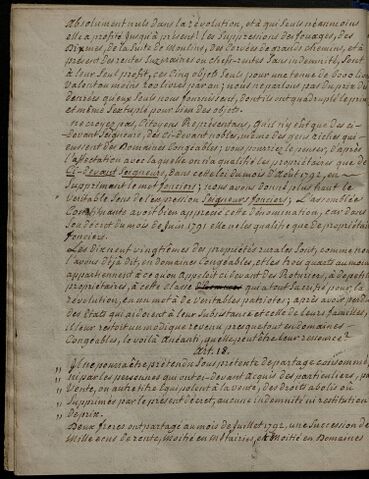 absolument nuls dans la révolution, et à qui seuls néanmoins
elle a profité jusqu'à présent! les Suppressions des fouages, des
Dixmes, de la Suite de Moulins, des Corvées de grands chemins, et à
présent des rentes Suzeraines ou chefs-rentes Sans indemnité, Sont
à leur Seul profit, ces Cinq objets Seuls pour une tenue de 6000
valent au moins 200 livres par an; nous ne parlons pas du prix des
denrées qu'eux Seuls nous fournissent, dont ils ont quadruplé le prix
et même Sextuplé pour bien des objets.
ne croyez pas, Citoyens Représentans, qu'il n'y eut que des ci-
devant Seigneurs, des Ci-devant nobles, même des gens riches qui
eussent des Domaines Congéables; vous pourriez le penser, d'après
l'affectation avec laquelle on n'a qualifié les propriétaires que de
Ci-devant Seigneurs, dans cette loi du mois d'Aout 1792, en
Supprimant le mot fonciers; nous avons donné plus haut le
Veritable Sens de l'expression Seigneurs fonciers; L'assemblée
Constituante avoit bien apprecié cette dénomination, car dans
Son décret du mois de Juin 1791 elle ne les qualifie que de propriétaires
fonciers.
Les dix neuf vingtièmes des propriétés rurales Sont, comme nous
l'avons déjà dit, en domaines Congéables, et les trois quarts au moins
appartiennent à ce qu'on Appeloit ci devant des Roturiers, à de petits
propriétaires, à cette classe qui a tout Sacrifié pour la
révolution, en un mot à de Veritables patriotes; après avoir perdu
des états qui aidoient à leur Subsistance et celle de leurs familles,
il leur restoit un modique revenu presque tout en domaines
Congéables, le voilà Anéanti, quelle peut être leur ressource?
Art. 18.
" Il ne pourra être prétendu Sous prétexte de partage consommé,
" ni par les personnes qui ont ci-devant Acquis des particuliers, par
" Vente, ou autre titre équipolent à la vente, des Droits abolis ou
" Supprimés par le présent décret, aucune indemnité ni restitution
" de prix.
Deux freres ont partagé au mois de Juillet 1792, une Succession de
Mille écus de rente, Moitié en Métairies, et Moitié en Domaines